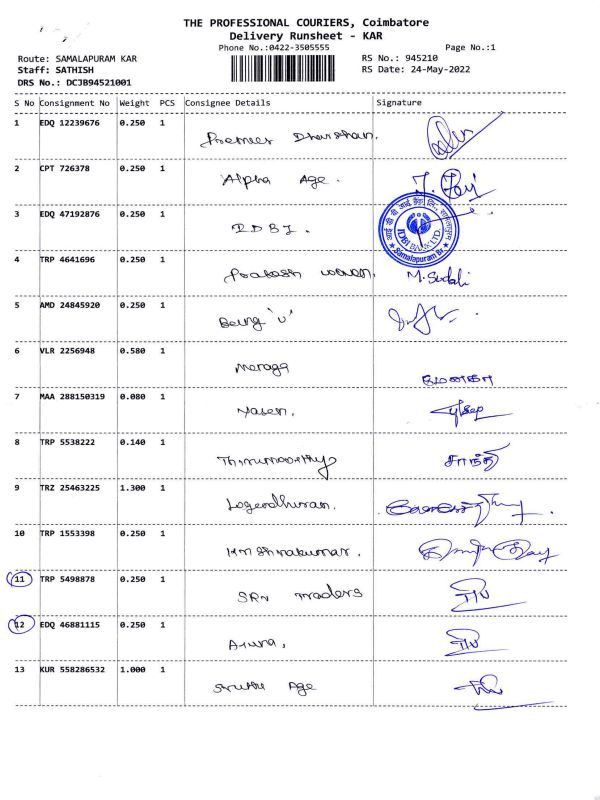 THE PROFESSIONAL COURIERS, Coimbatore
Delivery Runsheet - KAR
Phone No.:0422-3505555
Page No.:1
Route: SAMALAPURAM KAR
RS No.: 945210
Staff: SATHISH
RS Date: 24-May-2022
DRS No.: DCJB94521001
S No Consignment No Weight PCS Consignee Details Signature
1 EDQ 12239676 0.250 1 Premier Dharshan.
2 CPT 726378 0.250 1 Alpha Age.
3 EDQ 47192876 0.250 1 IDBI.
IDBI BANK LTD.
Samalapuram Br
4 TRP 4641696 0.250 1 Prakash M. Sudali
5 AMD 24845920 0.250 1 Being 'u'
6 VLR 2256948 0.580 1 Meraga
7 MAA 288150319 0.080 1 Yasen.
8 TRP 5538222 0.140 1 Thirumoorthy சாந்தி
9 TRZ 25463225 1.300 1
10 TRP 1553398 0.250 1
11 TRP 5498878 0.250 1 SRN Traders
12 EDQ 46881115 0.250 1
13 KUR 558286532 1.000 1 Age